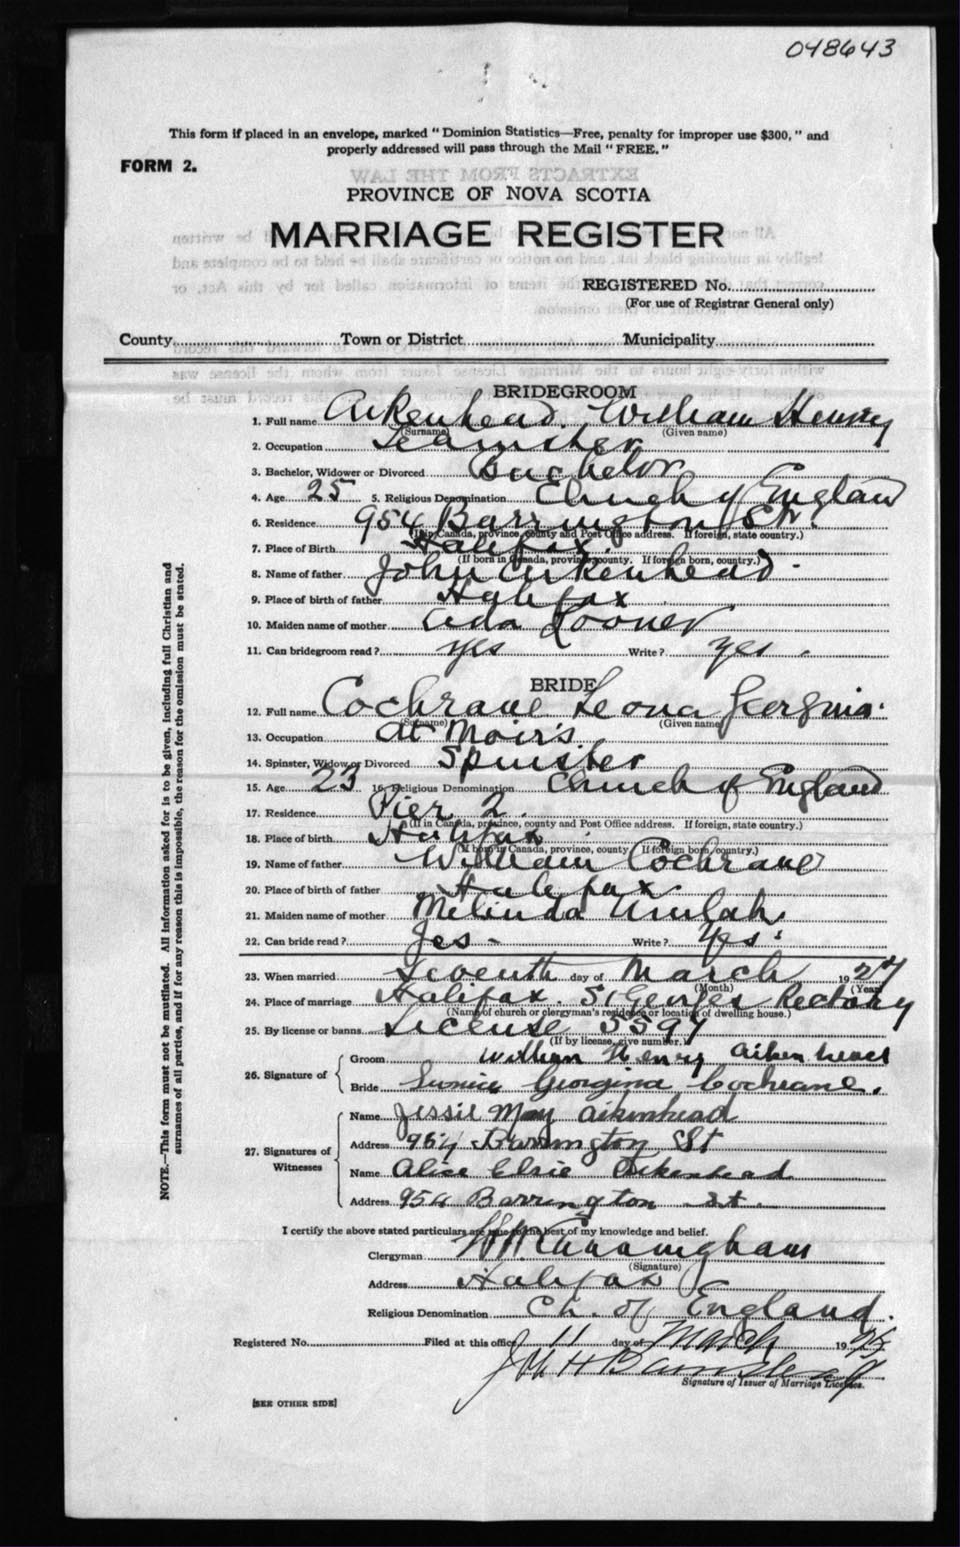 048643
This form if placed in an envelope, marked "Dominion Statistics—Free, penalty for improper use $300," and
properly addressed will pass through the Mail "FREE."
FORM 2.
EXTRACTS FROM THE LAW
PROVINCE OF NOVA SCOTIA
MARRIAGE REGISTER
REGISTERED No.
(For use of Registrar General only)
County Town or District Municipality
BRIDEGROOM
1. Full name Aikenhead William Henry
(Surname) (Given name)
2. Occupation Teamster
3. Bachelor, Widower or Divorced Bachelor
4. Age 25 5. Religious Denomination Church of England
6. Residence 954 Barrington St.
(If in Canada, province, county and Post Office address. If foreign, state country.)
7. Place of Birth Halifax.
(If born in Canada, province, county. If foreign born, country.)
8. Name of father John Aikenhead
9. Place of birth of father Halifax
10. Maiden name of mother Ada
11. Can bridegroom read? yes Write? yes.
BRIDE
12. Full name Cochrane Georgina
(Surname) (Given name)
13. Occupation At Moirs
14. Spinster, Widow or Divorced Spinster
15. Age 23 16. Religious Denomination Church of England
17. Residence Pier 2.
(If in Canada, province, county and Post Office address. If foreign, state country.)
18. Place of birth Halifax
(If born in Canada, province, county. If foreign born, country.)
19. Name of father William Cochrane
20. Place of birth of father Halifax
21. Maiden name of mother Melinda
22. Can bride read? Yes - Write? Yes
23. When married Seventh day of March 19
(Month) (Year)
24. Place of marriage Halifax. St Georges Rectory
(Name of church or clergyman's residence or location of dwelling house.)
25. By license or banns License 5597
(If by license, give number.)
26. Signature of
Groom William Henry Aikenhead
Bride Georgina Cochrane.
27. Signatures of Witnesses
Name Jessie May Aikenhead
Address 954 Barrington St
Name Alice Elsie Aikenhead
Address 954 Barrington St.
I certify the above stated particulars are true to the best of my knowledge and belief.
Clergyman Cunningham
(Signature)
Address Halifax
Religious Denomination Ch. of England.
Registered No. Filed at this office 11 day of March 19
Signature of Issuer of Marriage Licenses.
[SEE OTHER SIDE]
NOTE.—This form must not be mutilated. All information asked for is to be given, including full Christian and
surnames of all parties, and if for any reason this is impossible, the reason for the omission must be stated.